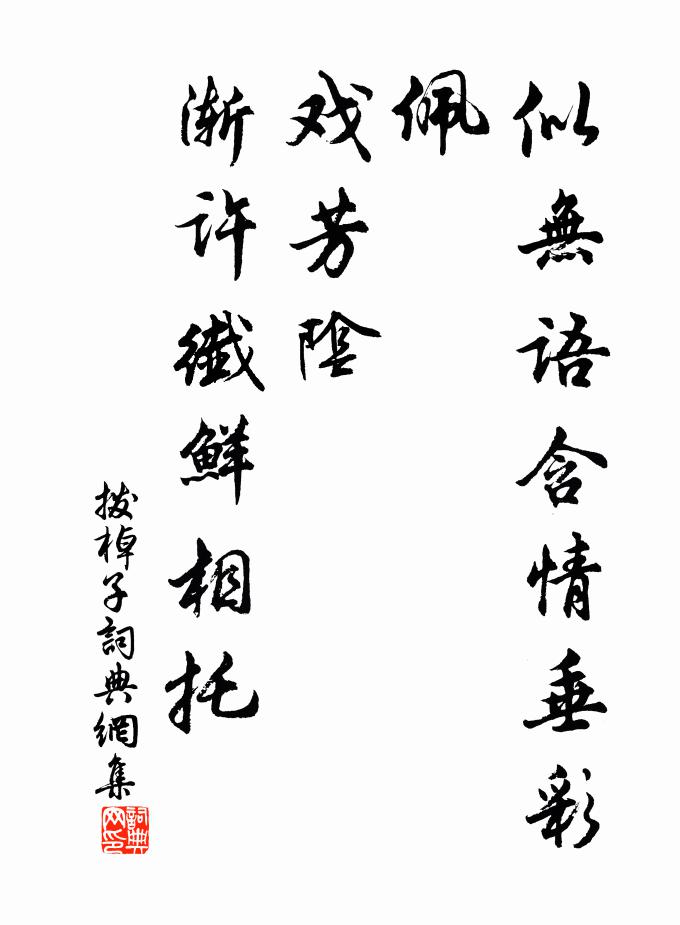 似無語含情垂彩
佩
戏芳陰
漸許纖鮮相托
拨棹子詞典網集
詞典网印